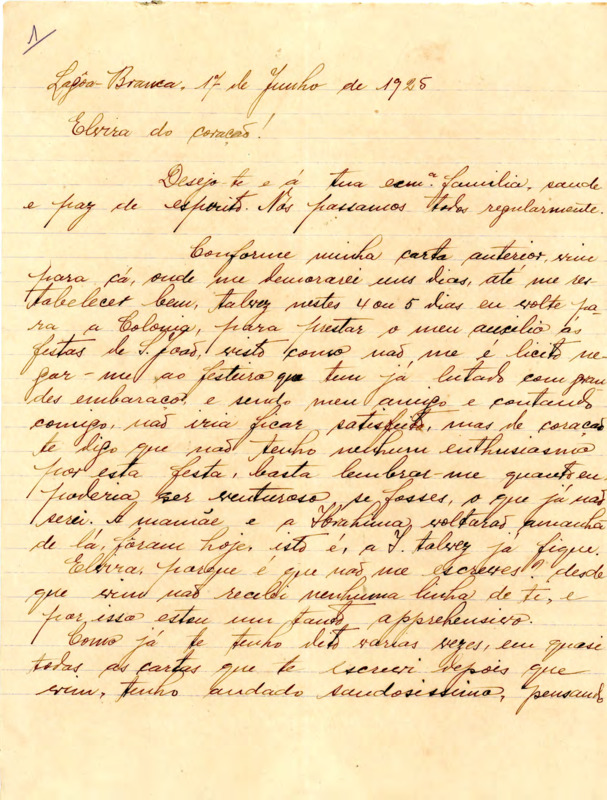 1
Lagôa-Branca. 17 de Junho de 1925
Elvira do coração!
Desejo-te e á tua exmª. familia, saude
e paz de espirito. Nós passamos todos regularmente.
Conforme minha carta anterior, vim
para cá, onde me demorarei uns dias, até me res-
tabelecer bem, talvez nestes 4 ou 5 dias eu volte pa-
ra a Colonia, para prestar o meu auxilio às
festas de S. João, visto como não me é licito ne-
gar-me ao festeiro que tem já lutado com gran
des embaraços, e sendo meu amigo e contando
comigo, não iria ficar satisfeito, mas de coração
te digo que não tenho nenhum enthusiasmo
por esta festa, basta lembrar-me quanto eu
poderia ser venturoso, se fosses, o que já não
serei. A mamãe e a voltarão amanhã
de lá, fôram hoje, isto é, a I. talvez já fique.
Elvira, porque é que não me escreves? desde
que vim não recebi nenhuma linha de ti, e
por isso estou um tanto apprehensivo.
Como já te tenho dito varias vezes, em quasi
todas as cartas que te escrevi depois que
vim, tenho andado saudosissimo, pensando